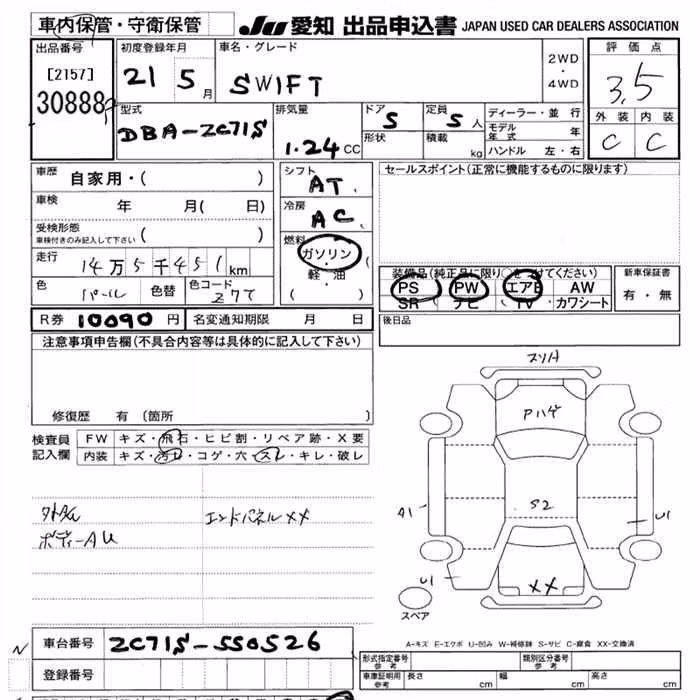 車内保管・守衛保管 JU 愛知 出品申込書 JAPAN USED CAR DEALERS ASSOCIATION
出品番号 初度登録年月 車名・グレード 評価点
[2157] 21 5月 SWIFT 2WD・4WD 3.5
30888
型式 排気量 ドア 5 定員 5人 ディーラー・並行 外装 内装
DBA-ZC71S 1.24CC 形状 積載 kg モデル年式 年 C C
ハンドル 左・右
車歴 自家用・( ) シフト AT セールスポイント(正常に機能するものに限ります)
車検 年 月( 日) 冷房 AC
受検形態 車検付きのみ記入して下さい ( ) 燃料 ガソリン・軽油 ( )
走行 14万5千451km
色 パール 色替 色コード Z7T
装備品(純正品に限り○をつけてください) 新車保証書
PS PW エアB AW 有・無
SR ナビ TV カワシート
R券 10090円 名変通知期限 月 日 後日品
注意事項申告欄(不具合内容等は具体的に記入して下さい)
修復歴 有(箇所 )
検査員記入欄 FW キズ・飛石・ヒビ割・リペア跡・X要
内装 キズ・汚レ・コゲ・穴・スレ・キレ・破レ
ボディーAU エンドパネルXX
スリA
Pハゲ
S2
A1
U1
U1
XX
スペア
A-キズ E-エクボ U-凹み W-補修跡 S-サビ C-腐食 XX-交換済
車台番号 ZC71S-550526
登録番号
形式指定番号 参考 類別区分番号 参考
車庫証明用 参考 長さ cm 幅 cm 高さ cm